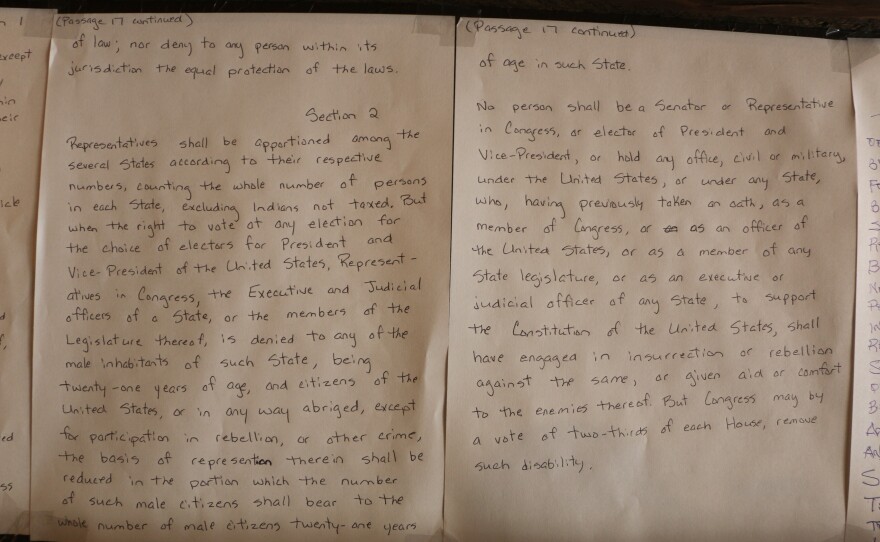 n 1
except
in
eir
ick
d
f,
ed
ss
(Passage 17 continued)
of law; nor deny to any person within its
jurisdiction the equal protection of the laws.
Section 2
Representatives shall be apportioned among the
several States according to their respective
numbers, counting the whole number of persons
in each State, excluding Indians not taxed. But
when the right to vote at any election for
the choice of electors for President and
Vice-President of the United States, Represent-
atives in Congress, the Executive and Judicial
officers of a State, or the members of the
Legislature thereof, is denied to any of the
male inhabitants of such State, being
twenty-one years of age, and citizens of the
United States, or in any way abriged, except
for participation in rebellion, or other crime,
the basis of represention therein shall be
reduced in the portion which the number
of such male citizens shall bear to the
whole number of male citizens twenty-one years
(Passage 17 continued)
of age in such State.
No person shall be a Senator or Representative
in Congress, or elector of President and
Vice-President, or hold any office, civil or military,
under the United States, or under any State,
who, having previously taken an oath, as a
member of Congress, or as an officer of
the United States, or as a member of any
State legislature, or as an executive or
judicial officer of any State, to support
the Constitution of the United States, shall
have engaged in insurrection or rebellion
against the same, or given aid or comfort
to the enemies thereof. But Congress may by
a vote of two-thirds of each House, remove
such disability.